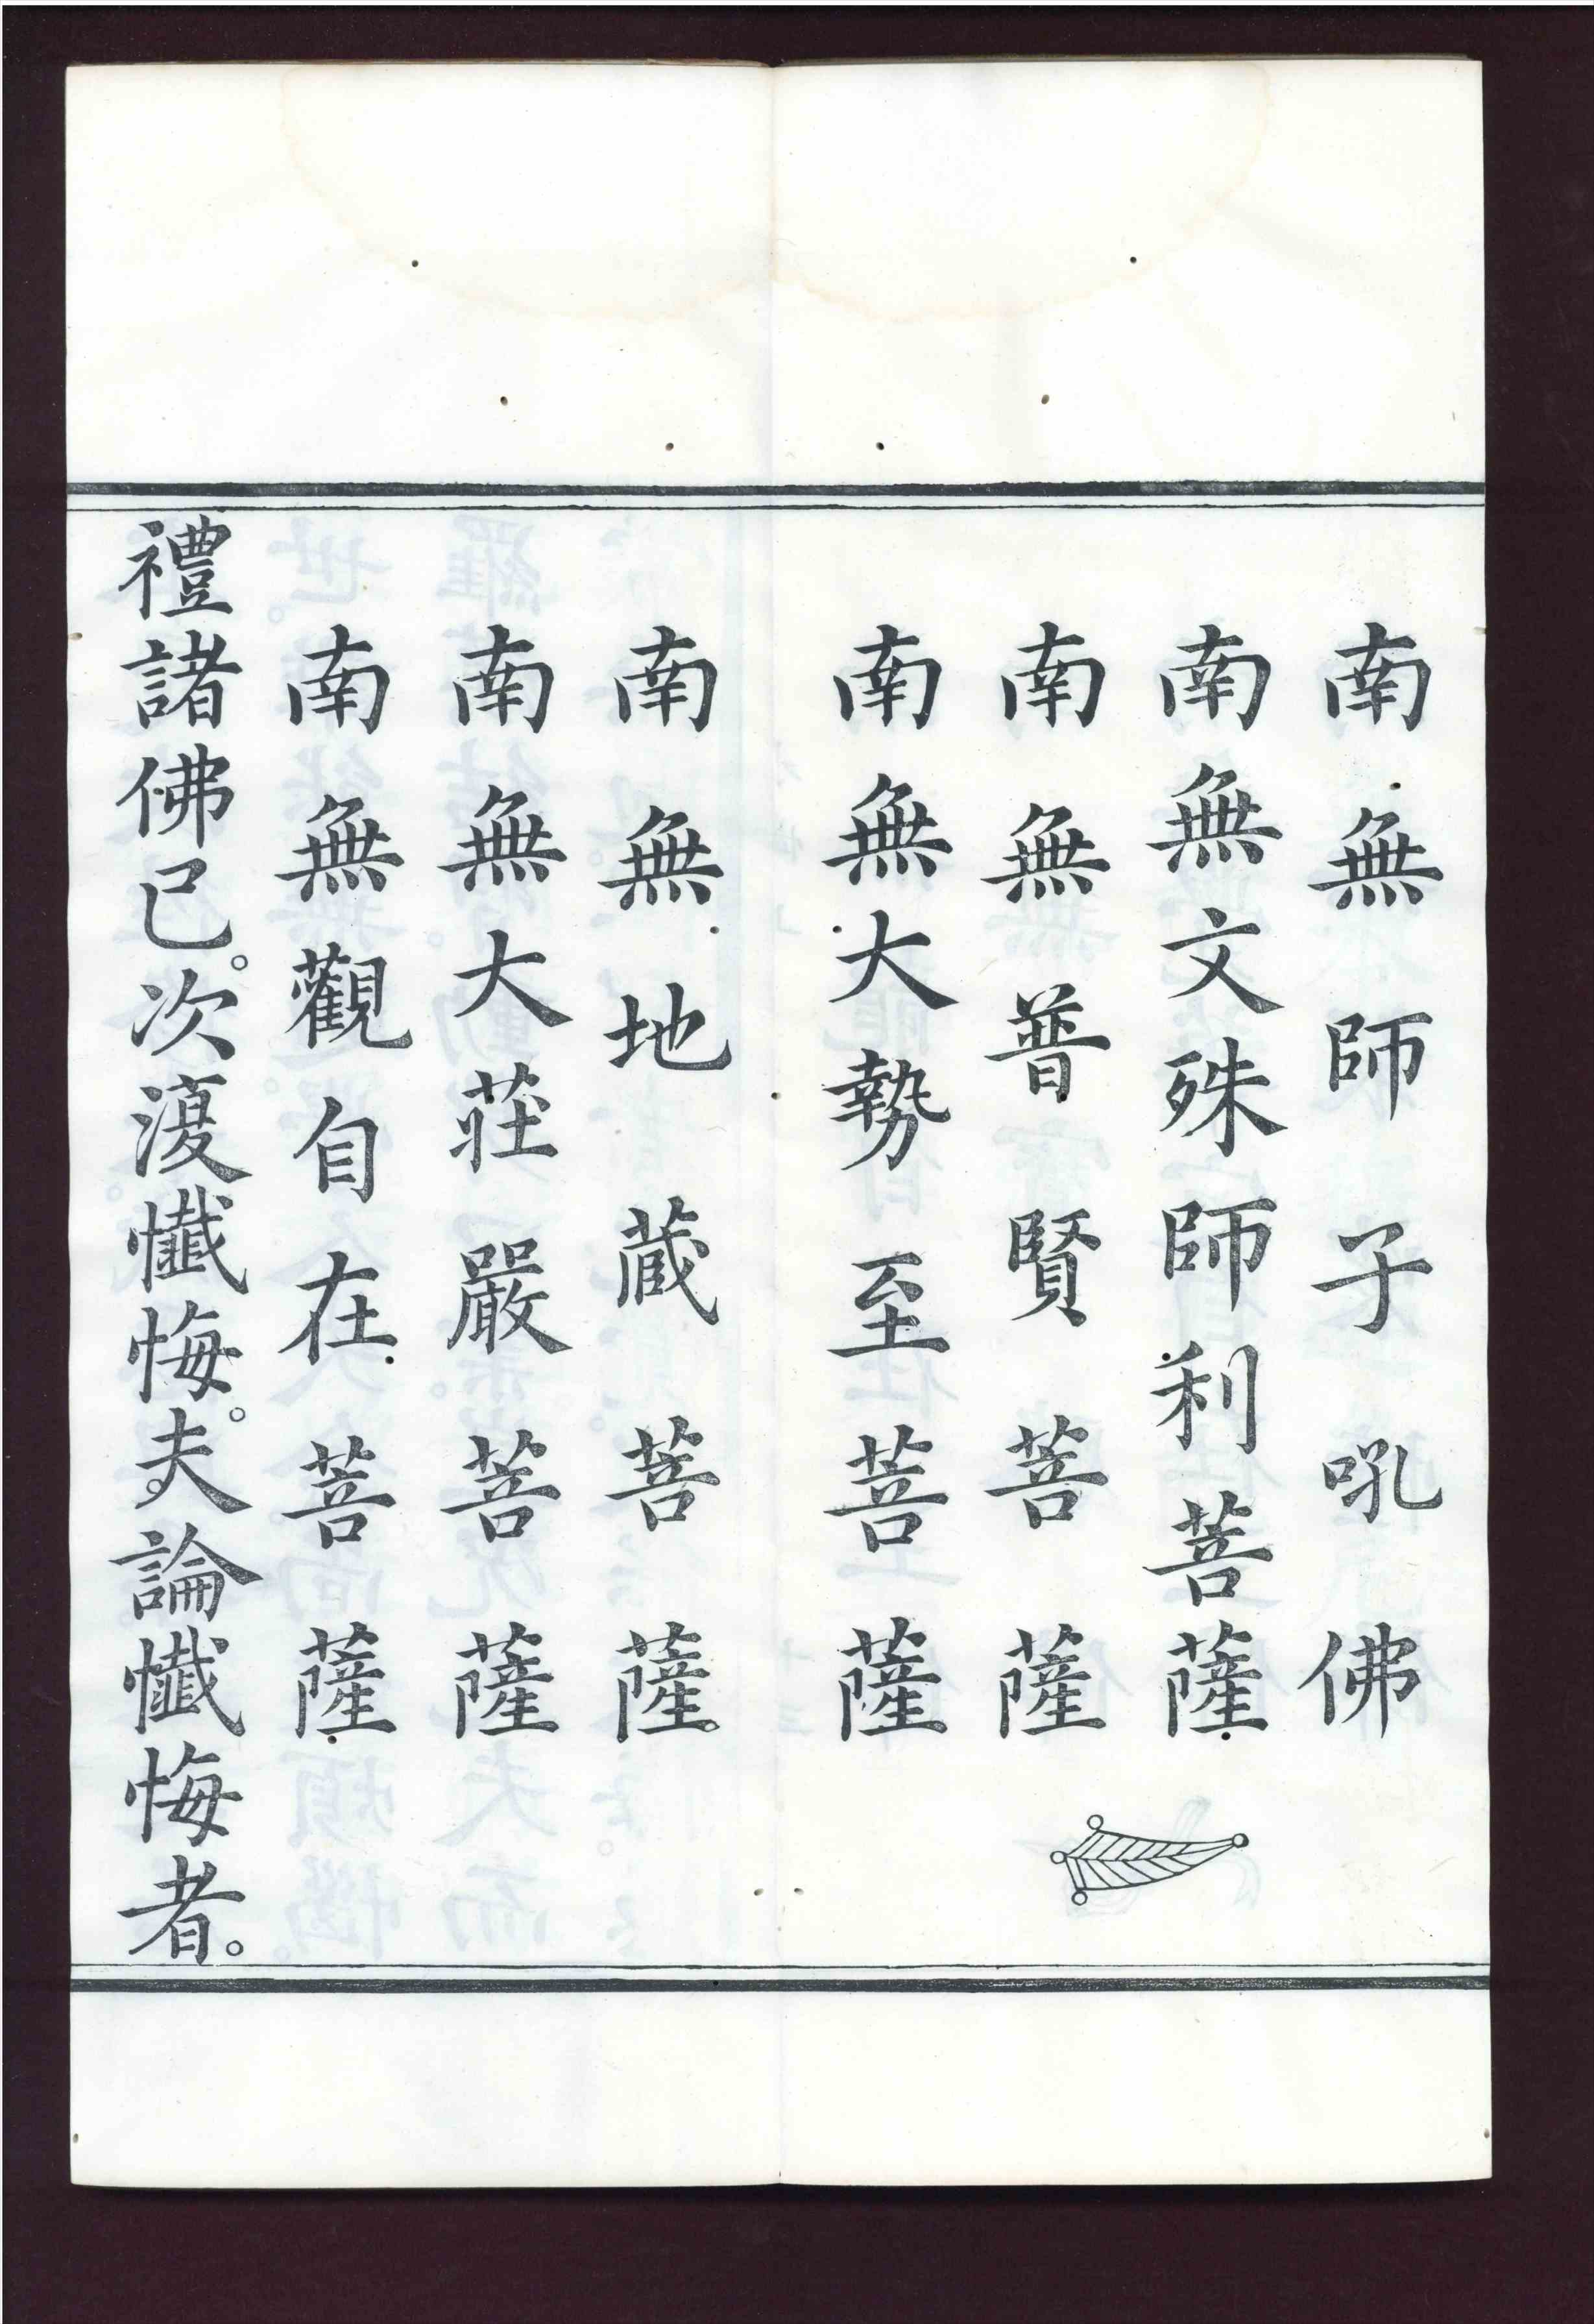 南無師子吼佛
南無文殊師利菩薩
南無普賢菩薩
南無大勢至菩薩
南無地蔵菩薩
南無大莊嚴菩薩
南無觀自在菩薩
禮諸佛已。次澓懺悔。夫論懺悔者。